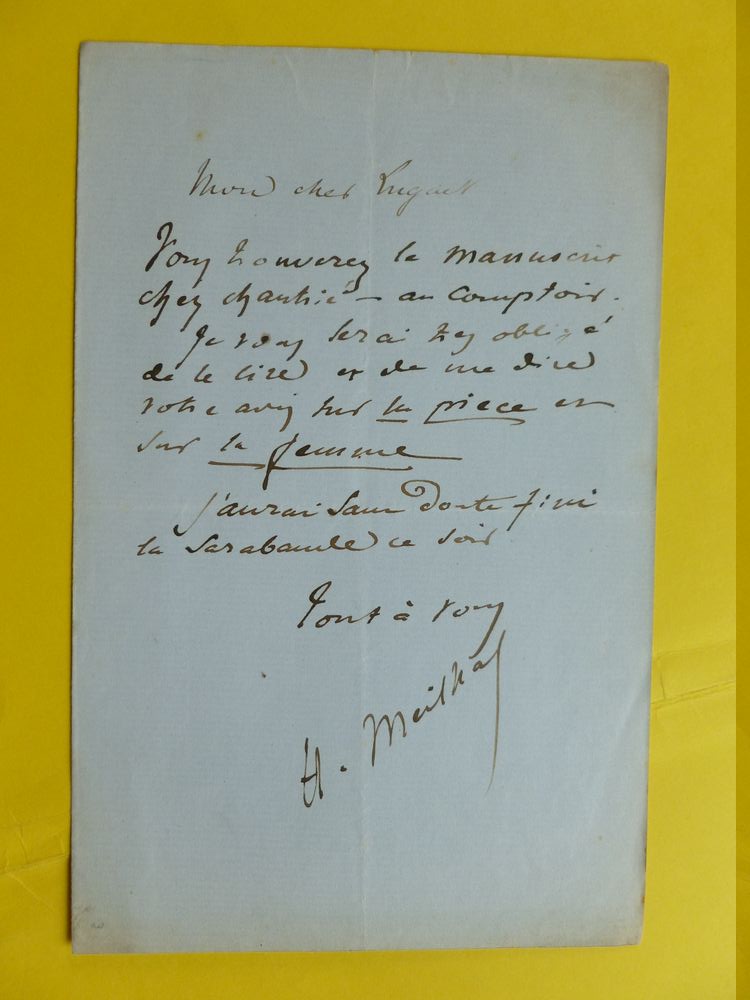 Mon cher Luguet
Vous trouverez le manuscrit
chez chantié — au comptoir.
Je vous serai très obligé
de le lire et de me dire
votre avis sur la pièce et
sur la femme
j'aurai sans doute fini
la sarabande ce soir
Tout à vous
H. Meilhac